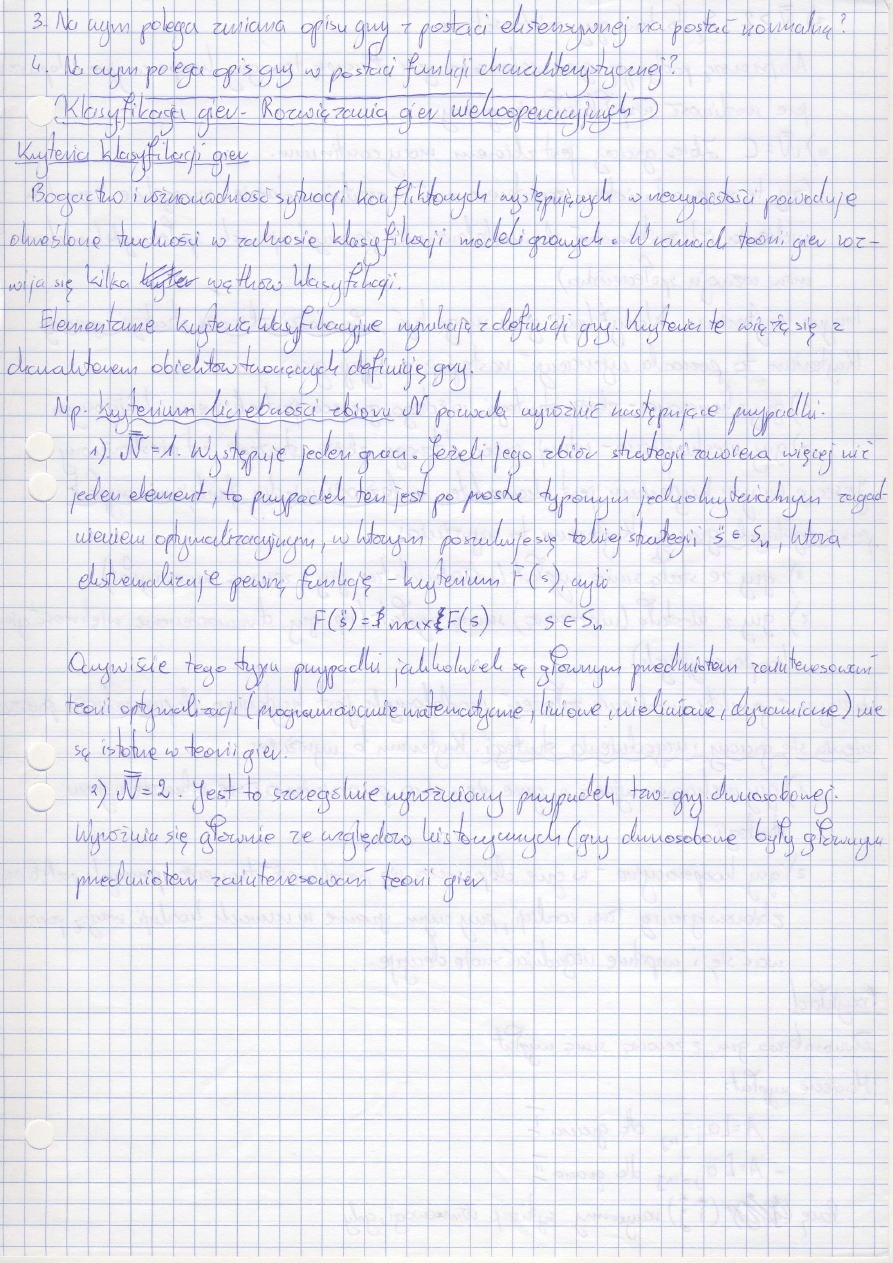 3. Na czym polega zmiana opisu gry z postaci ekstensywnej na postać normalną?
4. Na czym polega opis gry w postaci funkcji charakterystycznej?
Klasyfikacja gier - Rozwiązania gier niekooperacyjnych
Kryteria klasyfikacji gier
Bogactwo i różnorodność sytuacji konfliktowych występujących w rzeczywistości powoduje
określone trudności w zakresie klasyfikacji modeli growych. W ramach teorii gier roz-
wija się kilka wątków klasyfikacji.
Elementarne kryteria klasyfikacyjne wynikają z definicji gry. Kryteria te wiążą się z
charakterem obiektów tworzących definicję gry.
Np. kryterium liczebności zbioru N pozwala wyróżnić następujące przypadki.
1). N̿ = 1. Występuje jeden gracz. Jeżeli jego zbiór strategii zawiera więcej niż
jeden element, to przypadek ten jest po prostu typowym jednokryterialnym zagad-
nieniem optymalizacyjnym, w którym poszukuje się takiej strategii s̈ ∈ Sn, która
ekstremalizuje pewną funkcję - kryterium F(s), czyli
F(s̈) = max F(s) s ∈ Sn
Oczywiście tego typu przypadki jakkolwiek są głównym przedmiotem zainteresowań
teorii optymalizacji (programowanie matematyczne, liniowe, nieliniowe, dynamiczne) nie
są istotne w teorii gier.
2) N̿ = 2. Jest to szczególnie wyróżniony przypadek tzw. gry dwuosobowej.
Wyróżnia się głównie ze względów historycznych (gry dwuosobowe były głównym
przedmiotem zainteresowań teorii gier